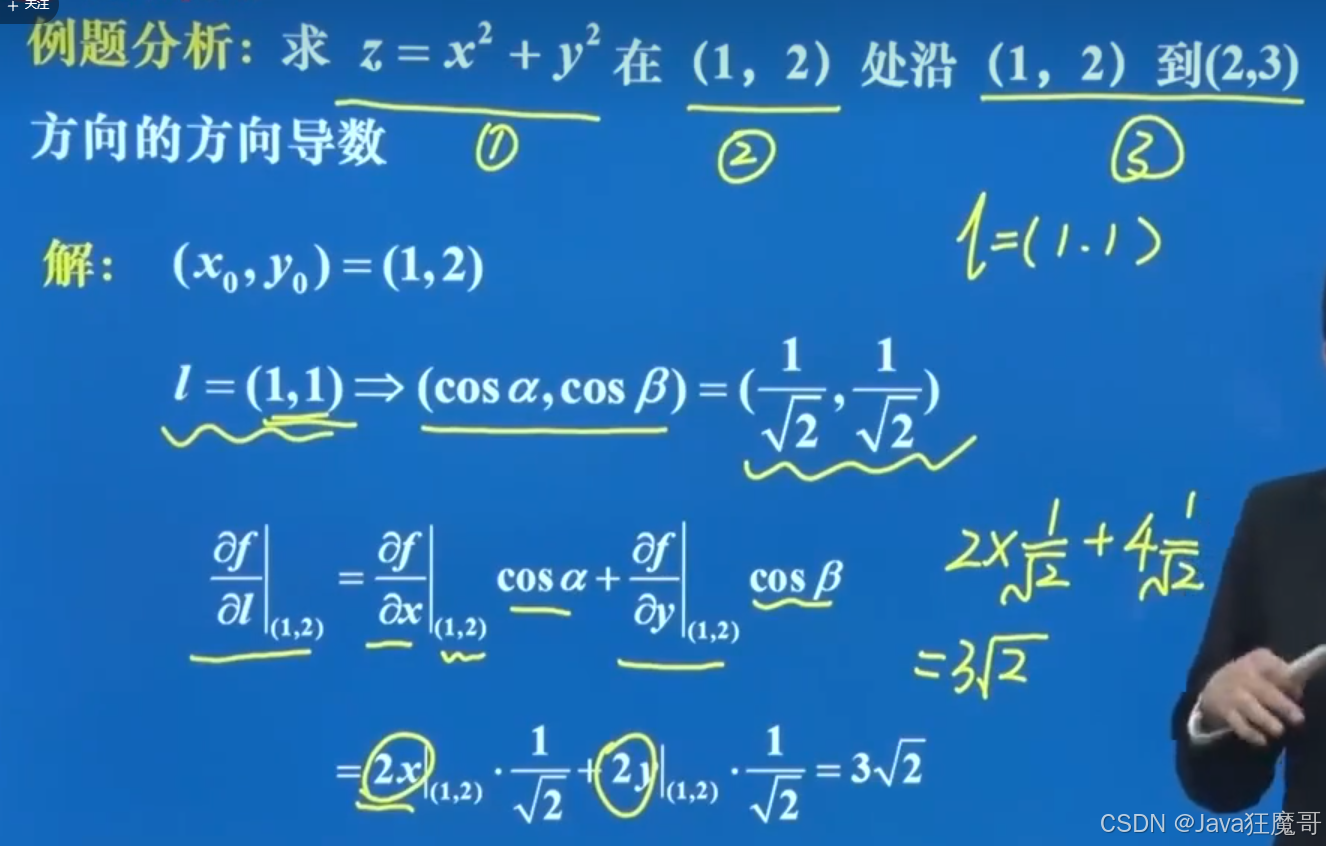 + 关注
例题分析：求 z = x² + y² 在（1，2）处沿（1，2）到(2,3)
方向的方向导数
① ② ③
l=(1.1)
解： (x₀, y₀) = (1,2)
l = (1,1) ⇒ (cos α, cos β) = (1/√2, 1/√2)
∂f/∂l|(1,2) = ∂f/∂x|(1,2) cos α + ∂f/∂y|(1,2) cos β
2×1/√2+4 1/√2
=3√2
= 2x|(1,2) · 1/√2 + 2y|(1,2) · 1/√2 = 3√2
CSDN @Java狂魔哥